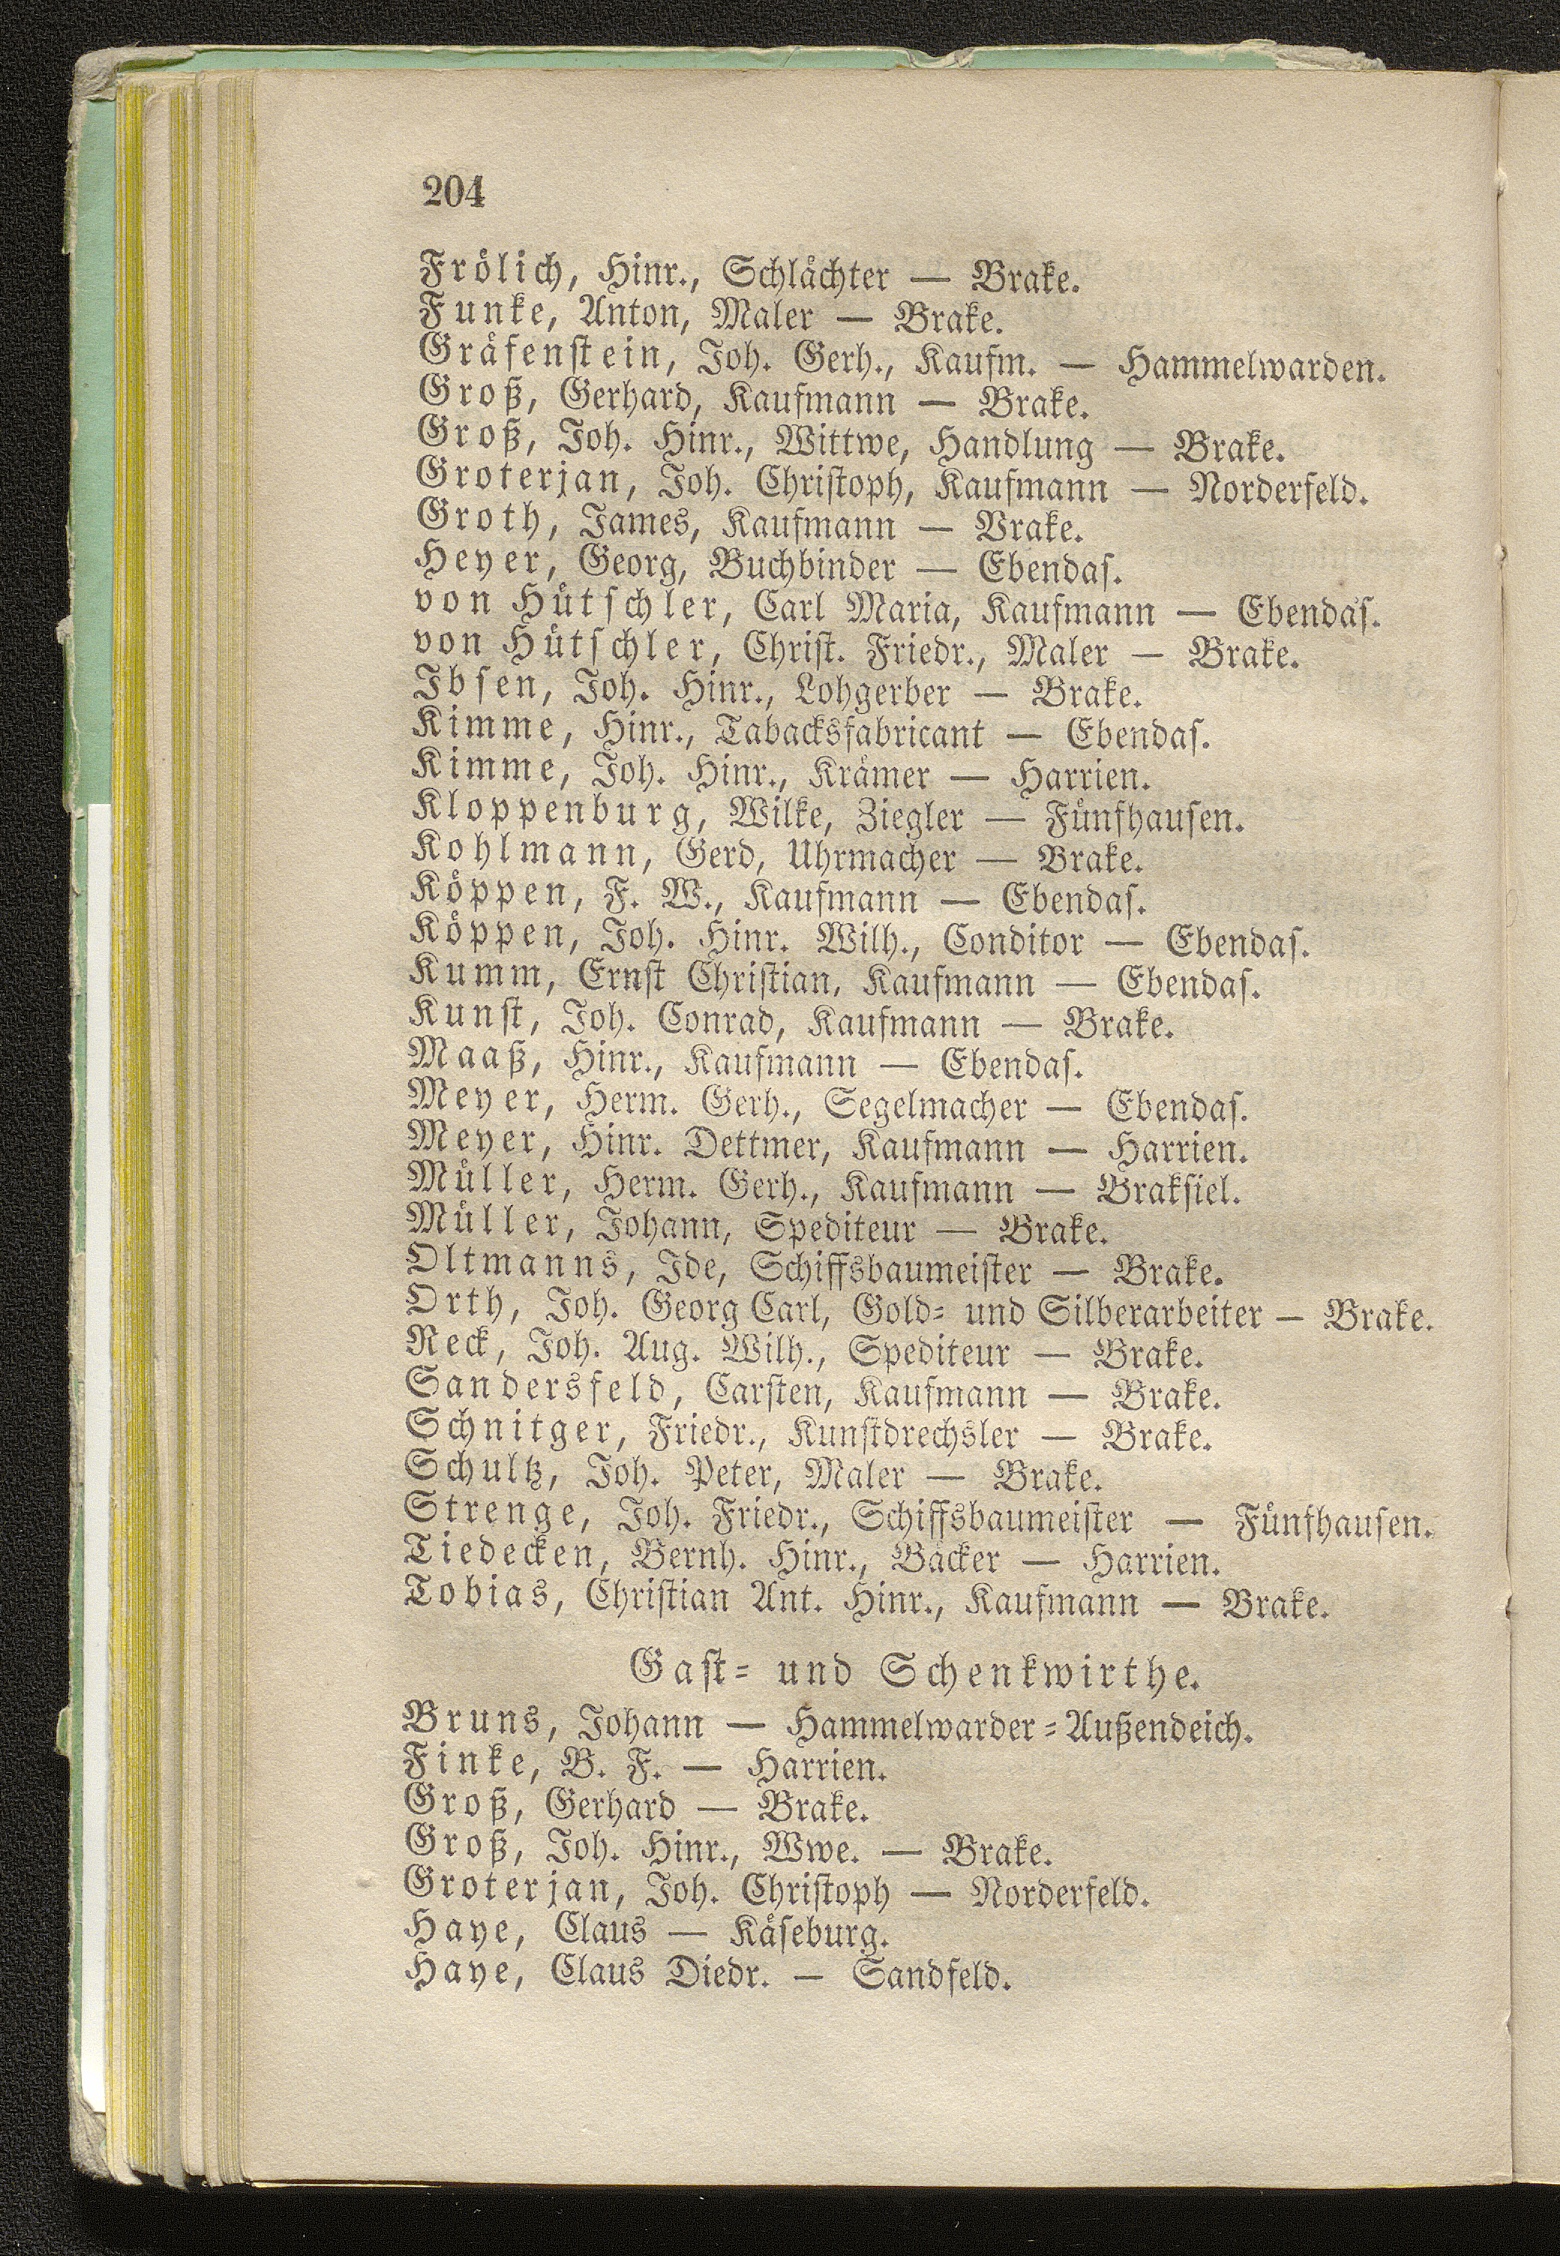 204
Frölich, Hinr., Schlächter — Brake.
Funke, Anton, Maler — Brake.
Gräfenstein, Joh. Gerh., Kaufm. — Hammelwarden.
Groß, Gerhard, Kaufmann — Brake.
Groß, Joh. Hinr., Wittwe, Handlung — Brake.
Groterjan, Joh. Christoph, Kaufmann — Norderfeld.
Groth, James, Kaufmann — Vrake.
Heyer, Georg, Buchbinder — Ebendas.
von Hütschler, Carl Maria, Kaufmann — Ebendas.
von Hütschler, Christ. Friedr., Maler — Brake.
Ibsen, Joh. Hinr., Lohgerber — Brake.
Kimme, Hinr., Tabacksfabricant — Ebendas.
Kimme, Joh. Hinr., Krämer — Harrien.
Kloppenburg, Wilke, Ziegler — Fünfhausen.
Kohlmann, Gerd, Uhrmacher — Brake.
Köppen, F. W., Kaufmann — Ebendas.
Köppen, Joh. Hinr. Wilh., Conditor — Ebendas.
Kumm, Ernst Christian, Kaufmann — Ebendas.
Kunst, Joh. Conrad, Kaufmann — Brake.
Maaß, Hinr., Kaufmann — Ebendas.
Meyer, Herm. Gerh., Segelmacher — Ebendas.
Meyer, Hinr. Dettmer, Kaufmann — Harrien.
Müller, Herm. Gerh., Kaufmann — Braksiel.
Müller, Johann, Spediteur — Brake.
Oltmanns, Ide, Schiffsbaumeister — Brake.
Orth, Joh. Georg Carl, Gold- und Silberarbeiter — Brake.
Reck, Joh. Aug. Wilh., Spediteur — Brake.
Sandersfeld, Carsten, Kaufmann — Brake.
Schnitger, Friedr., Kunstdrechsler — Brake.
Schultz, Joh. Peter, Maler — Brake.
Strenge, Joh. Friedr., Schiffsbaumeister — Fünfhausen.
Tiedecken, Bernh. Hinr., Bäcker — Harrien.
Tobias, Christian Ant. Hinr., Kaufmann — Brake.
Gast- und Schenkwirthe.
Bruns, Johann — Hammelwarder-Außendeich.
Finke, B. F. — Harrien.
Groß, Gerhard — Brake.
Groß, Joh. Hinr., Wwe. — Brake.
Groterjan, Joh. Christoph — Norderfeld.
Haye, Claus — Käseburg.
Haye, Claus Diedr. — Sandfeld.